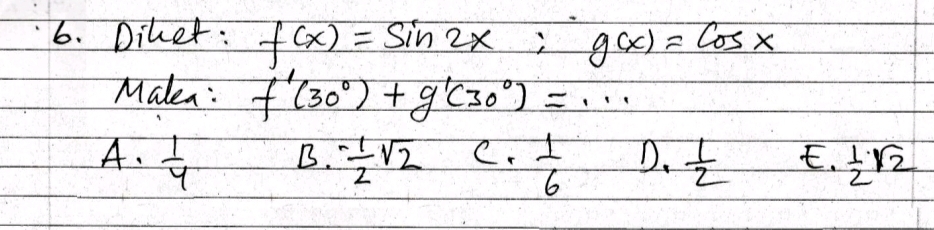 6. Diket : f(x) = Sin 2x ; g(x) = Cos x
Maka : f'(30°) + g'(30°) = ...
A. 1/4 B. -1/2 √2 C. 1/6 D. 1/2 E. 1/2 √2